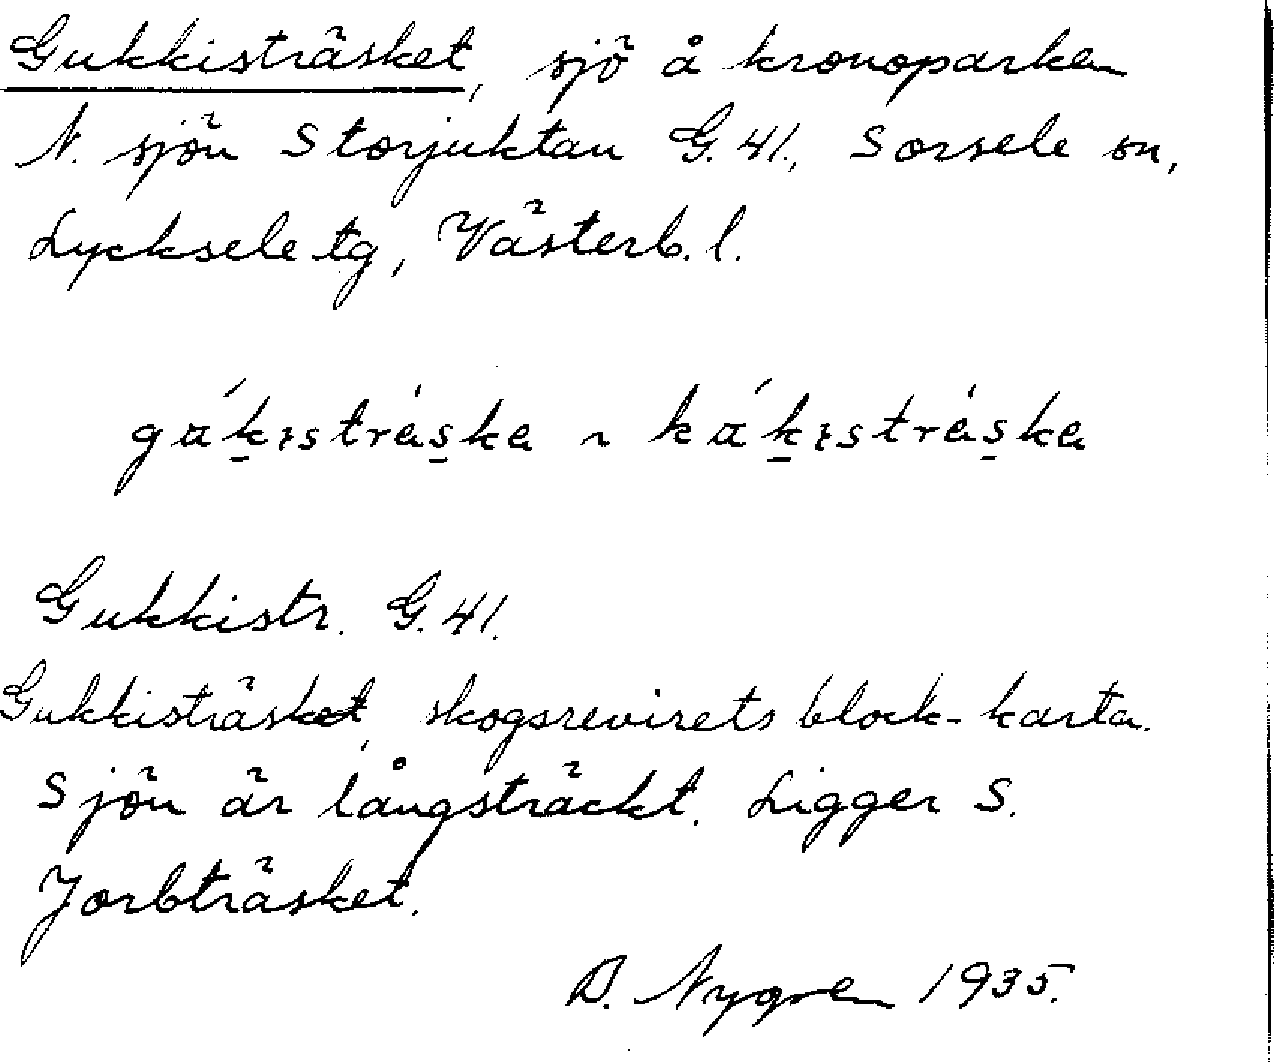 Gukkisträsket, sjö å kronoparken
N. sjön Storjuktan G. 41., Sorsele sn,
Lycksele tg, Västerb. l.
Gukkistr. G. 41.
Gukkisträsket, skogsrevirets block-karta.
Sjön är långsträckt. Ligger S.
Jorbträsket.
D. Nygren 1935.